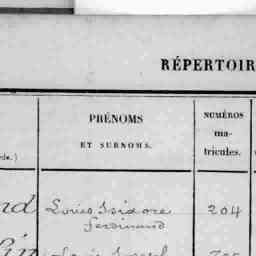 RÉPERTOIR
PRÉNOMS
ET SURNOMS.
NUMÉROS
ma-
tricules.
rde.)
nd Louis Isidore 204
ferdinand
Joseph